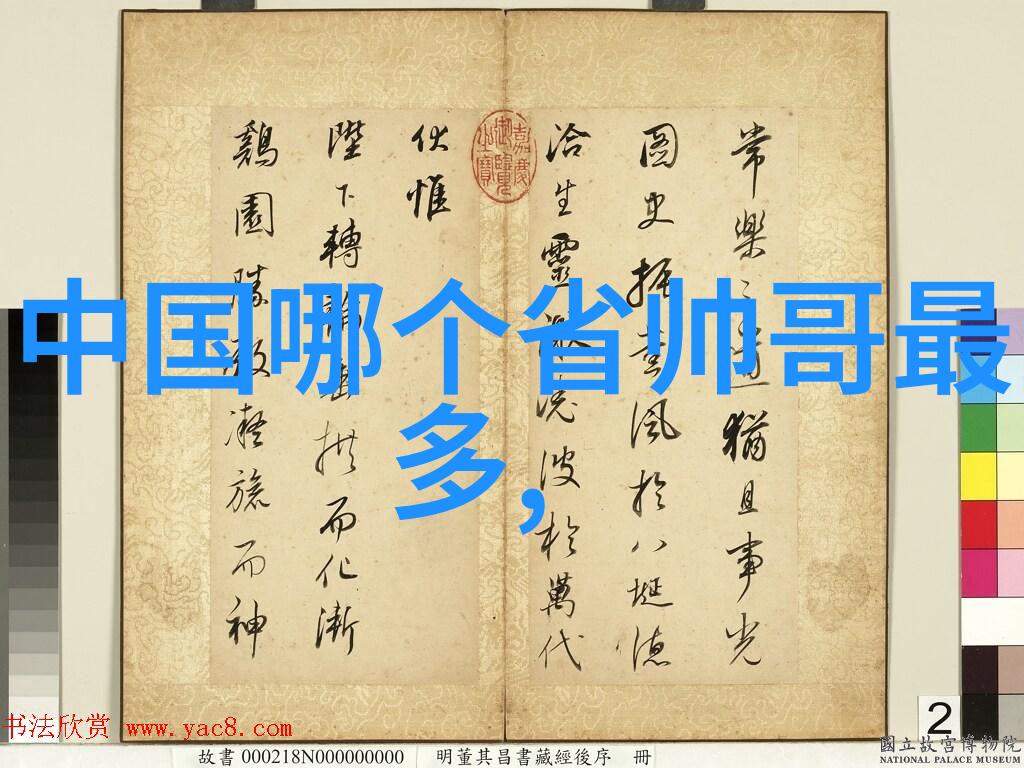 中国哪个省帅哥最
多，
常樂之通猶且事光
圖史振薰風於八埏德
洽生靈激波於萬代
嘉慶御覽之寶
伏惟
陛下轉輪垂拱而化漸
鷄園勝凝旒而神
2
书法欣赏 www.yac8.com
故書 000218N000000000 明董其昌書藏經後序 冊
國立故宮博物院
NATIONAL PALACE MUSEUM